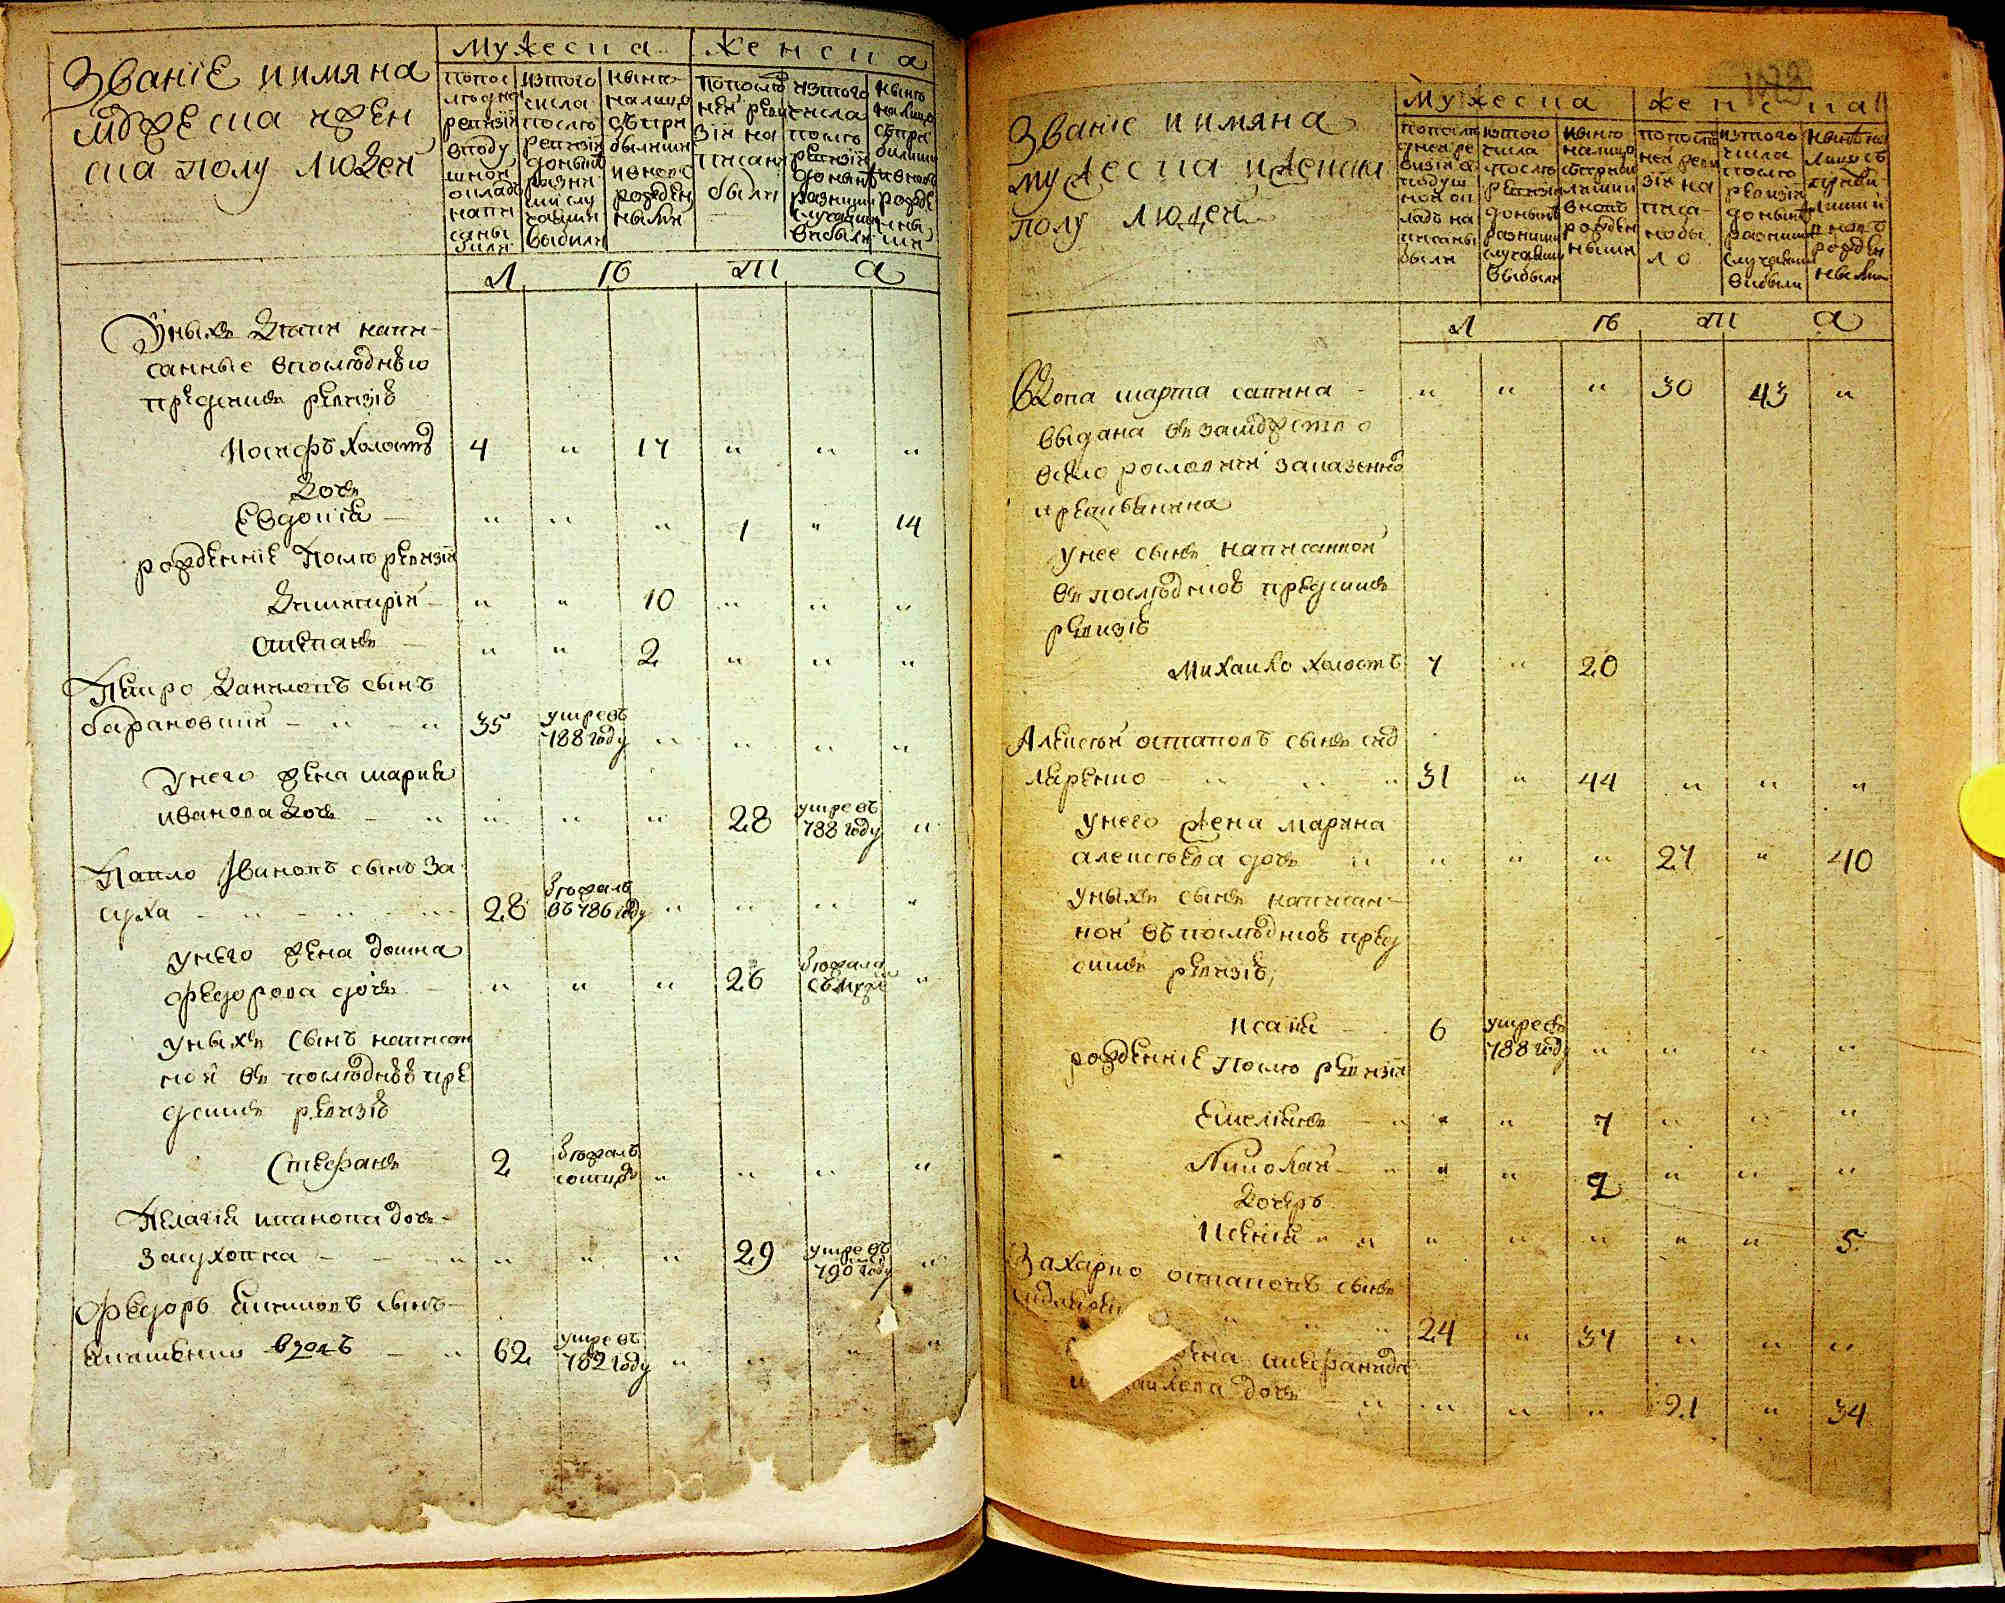 Званіе и имяна
мужеска и жен
ска полу людей
Мужеска
Женска
по пос
ледней
ревизіи
в поду
шной
окладъ
напи
саны
были
изтого
числа
после
ревизіи
доныне
разни
ми слу
чаями
выбыли
ныне
налицо
съ при
былыми
и вновь
рожден
ными
по послед
ней реви
зіи на
писан
были
изтого
числа
после
ревизіи
доныне
разними
случаями
выбыли
ныне
налицо
съ при
былими
и вновь
рожде
нны
ми
Л ѣ т а
У ныхъ дети напи-
санные в последнѣю
предъ симъ ревизіѣ
Иосифъ холостъ 4 " 17 " " "
дочь
Евдокия " " " 1 " 14
рожденніе после ревизіи
Димитрій " " 10 " " "
Степанъ " " 2 " " "
Петро Даниловъ сынъ
барановскій " " 35 умре въ
788 году " " " "
У него жена мария
иванова дочь " " " " 28 умре въ
788 году "
Павло Ивановъ сынъ За
суха 28 бежалъ
въ 786 году " " " "
у него жена домна
федорова дочь " " " 26 бежала
съ мужем "
у ныхъ сынъ написан
ной въ последнѣй пре
д симъ ревизіѣ
Стефанъ 2 бежалъ
с отцемъ " " " "
Пелагія иванова доч-
Засуховна " " " " 29 умре въ
790 году "
Федоръ сынъ
вдовъ " 62 умре въ
782 году " " " "
Званіе и имяна
мужеска и женска
полу людей
Мужеска
Женска
по после
дней ре
визіи в
подуш
ной ок
ладъ на
писаны
были
изтого
числа
после
ревизіи
доныне
разними
случаями
выбыли
ныне
налицо
съ при
лими
вновь
рожден
ными
по послед
ней реви
зіи на
писа-
но бы
ло
изтого
числа
после
ревизіи
доныне
разними
случаями
выбыли
ныне на
лицо съ
прибы
лими и
вновь
рожден
ными
Л ѣ т а
Вдова марта савина " " " 30 43 "
выдана въ замужство
въ село за казенного
у нее сынъ написанной
въ последней предъ симъ
ревизіѣ
Михайло холостъ 7 " 20
Алексѣй остаповъ сынъ сид
ляренко " " " 31 " 44 " " "
У него жена Марина
алексѣева дочь " " " " 27 " 40
у ныхъ сынъ написан-
ной въ последней пред
симъ ревизіѣ,
Исаій 6 умре въ
788 году " " " "
рожденніе после ревизіи
Емелянъ " " " 7 " " "
Николай " " " 2 " " "
дочеръ
Ксенія " " " " " " " 5
Захарко остаповъ сынъ
" " " 24 " 37 " " "
жена стефанида
дочь " " " " 21 " 34